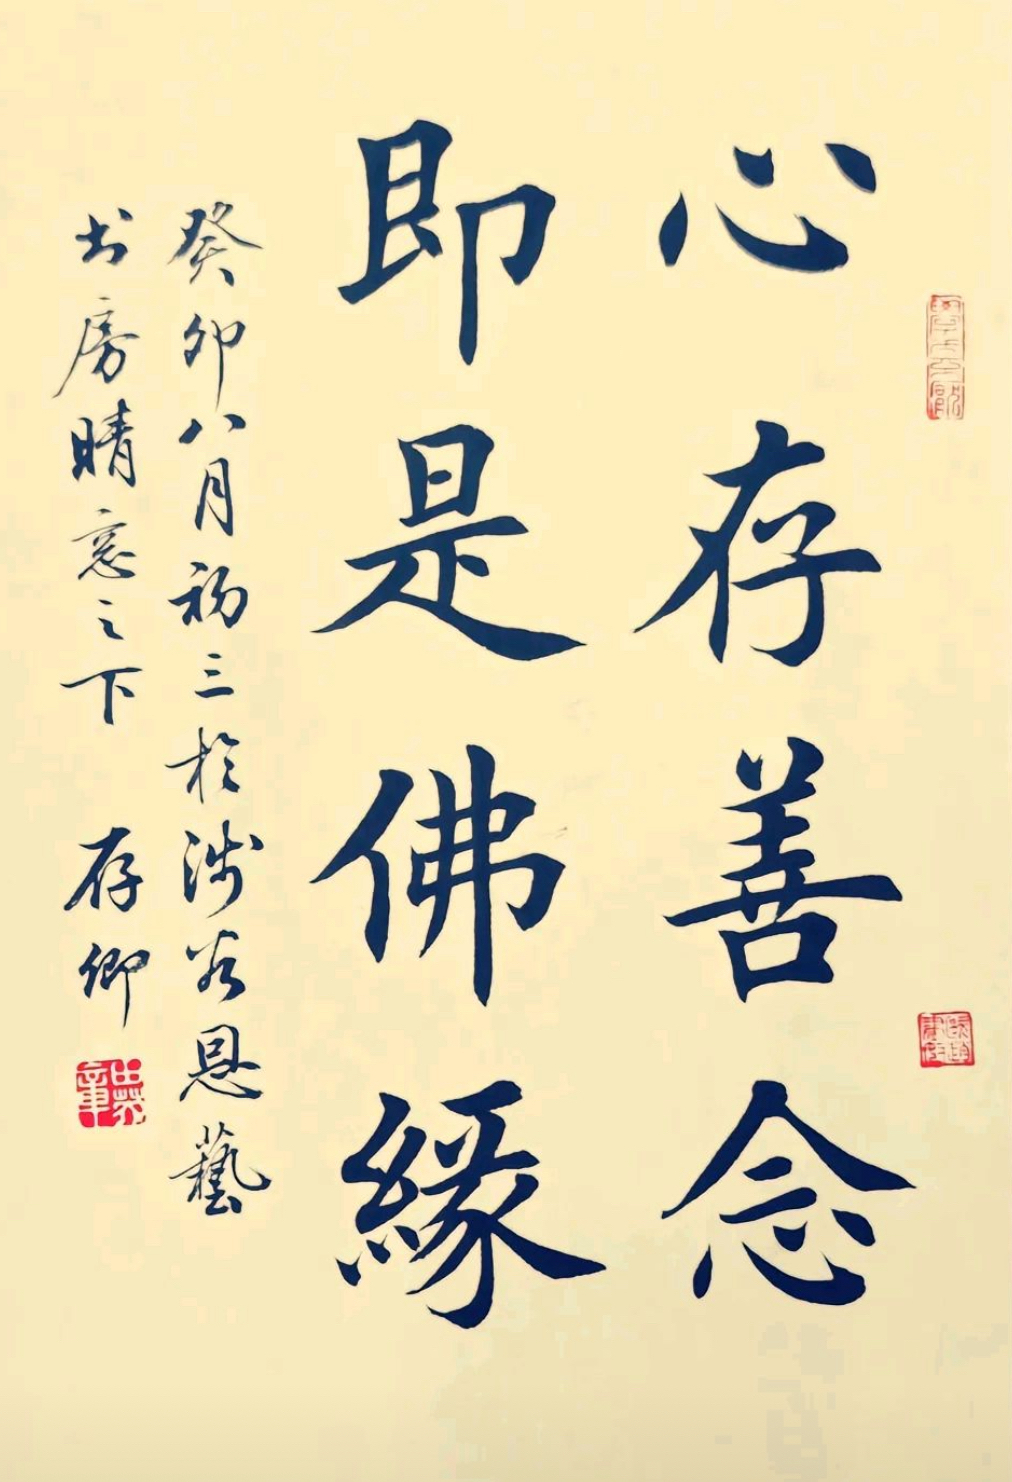 心存善念
即是佛緣
癸卯八月初三於涉谷恩藝
書房晴窓之下 存卿